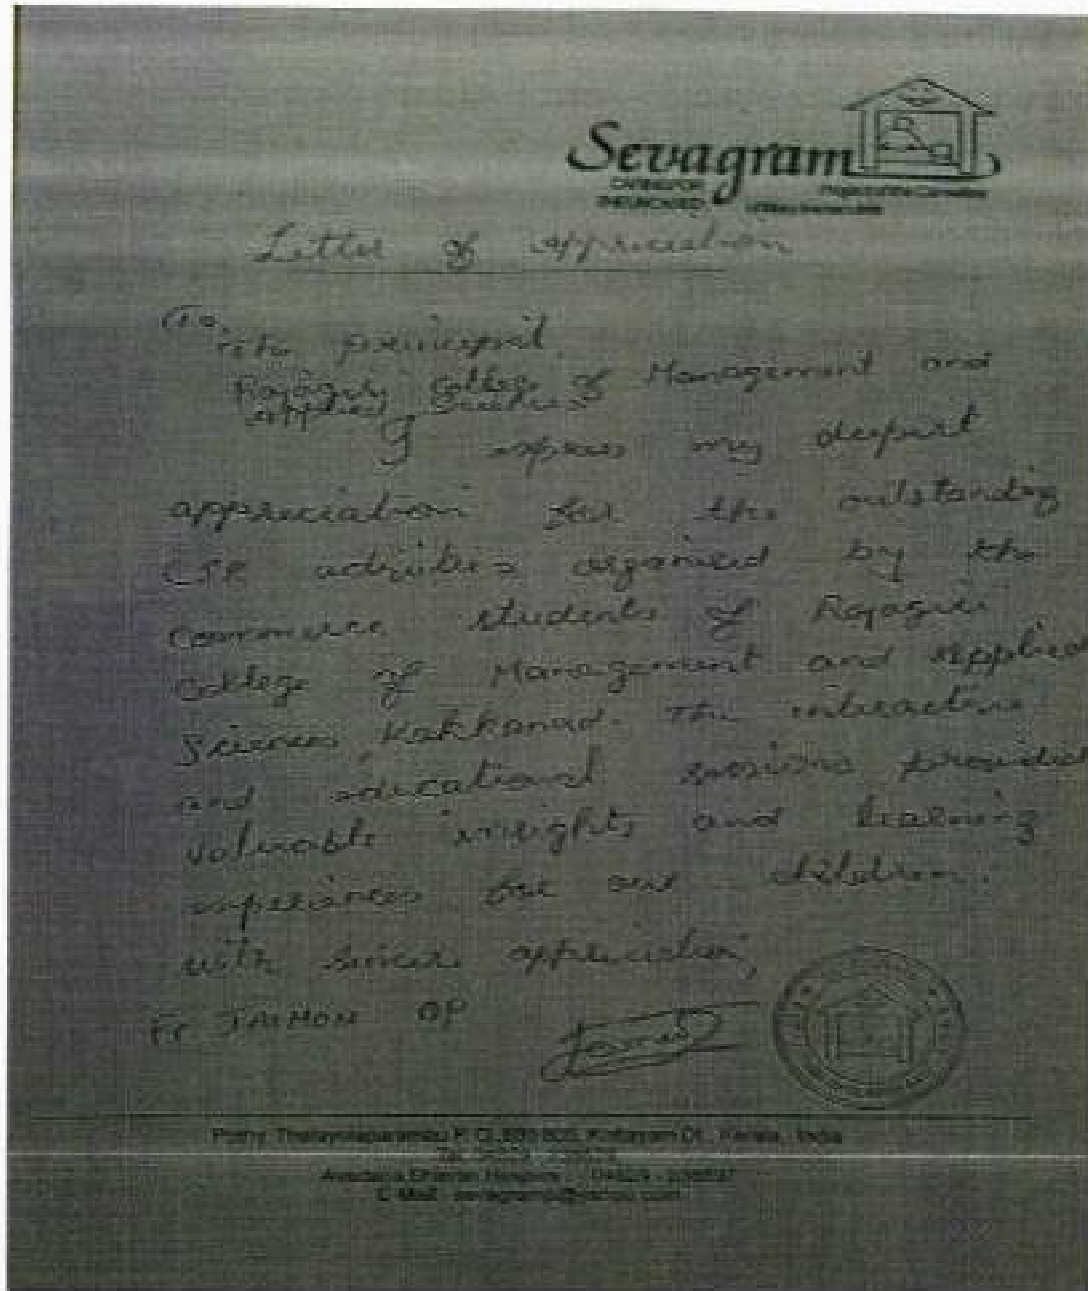 Sevagram
CARING FOR
THE UNCARED
Letter of Appreciation
To,
The principal
Rajagiri College of Management and
Applied Sciences
I express my deepest
appreciation for the outstanding
CSR activities organised by the
Commerce students of Rajagiri
College of Management and Applied
Sciences, Kakkanad. The interactive
and educational sessions provided
valuable insights and learning
experiences for our children.
with sincere appreciation,
Fr JAIMON OP
Pothy, Thalayolaparambu P.O., Kottayam Dt., Kerala, India